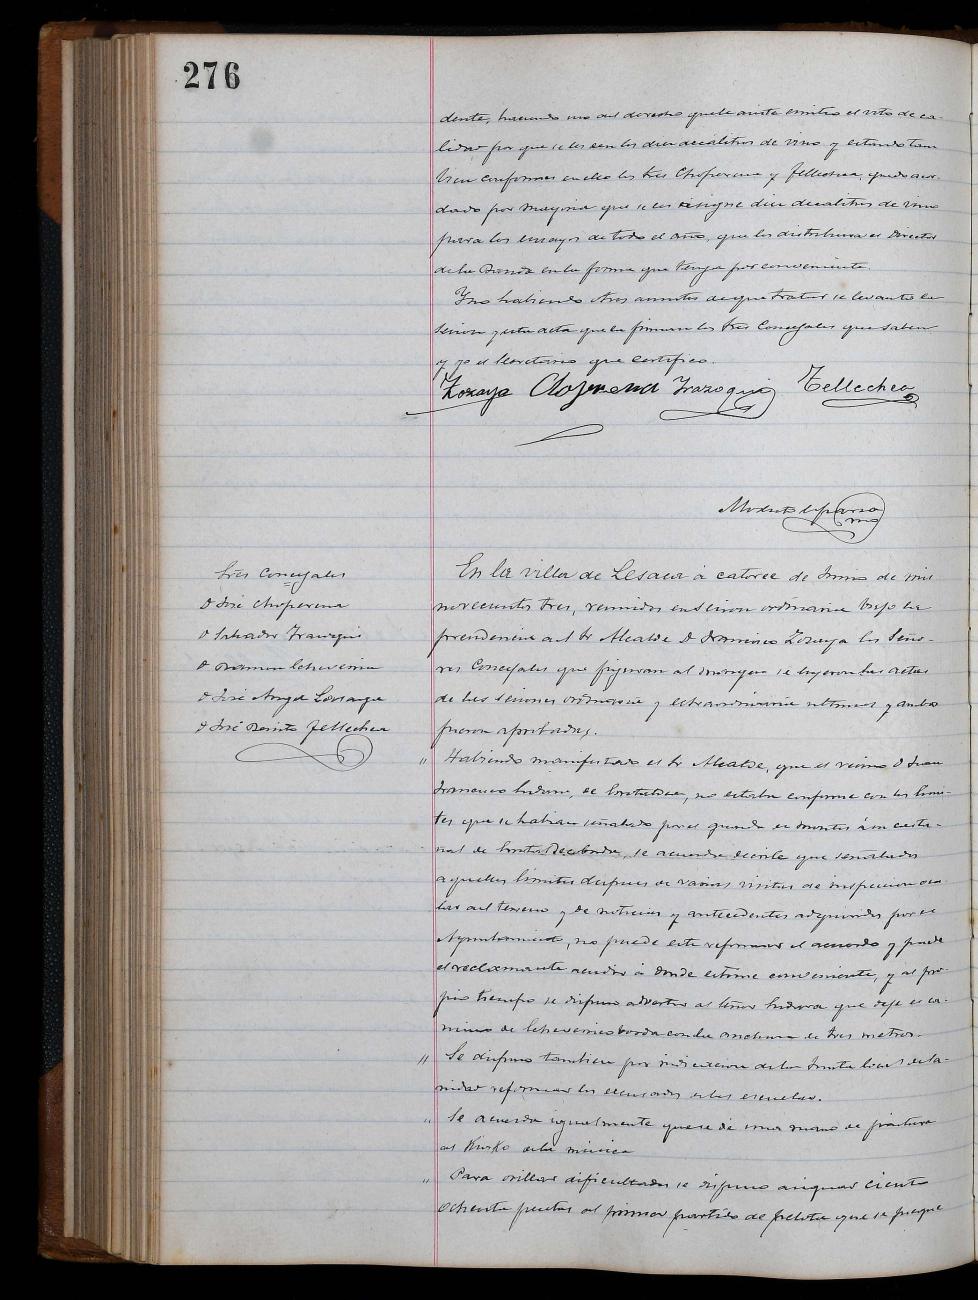 276
dente, haciendo uso del derecho que le asiste emitio el voto de ca-
lidad por que se les den los diez decalitros de vino y estando tam
bien conformes en ello los Sres Choperena y Tellechea, quedo acor-
dado por mayoria que se les asigne diez decalitros de vino
para los ensayos de todo el año, que los distribuira el Director
de la Banda en la forma que tenga por conveniente.
Y no habiendo otros asuntos de que tratar se levanto la
sesion y esta acta que la firman los Sres Concejales que saben
y yo el Secretario que certifico.
Zozaya Choperena Irazoqui Tellechea
Modesto Esparza
Sres Concejales
D José Choperena
D Salvador Irazoqui
D Ramon Echeverria
D José Angel
D José Benito Tellechea
En la villa de Lesaca á catorce de Junio de mil
novecientos tres, reunidos en sesion ordinaria bajo la
presidencia del Sr Alcalde D Francisco Zozaya los Seño-
res Concejales que figuran al margen se leyeron las actas
de las sesiones ordinaria y extraordinaria ultimas y ambas
fueron aprobadas.
" Habiendo manifestado el Sr Alcalde, que el vecino D Juan
Francisco, no estaba conforme con los limi-
tes que se habian señalado por el guarda de montes á un casta-
ñal de, se acuerda decirle que señalados
aquellos limites despues de varias visitas de inspeccion ocu
lar del terreno y de noticias y antecedentes adquiridos por el
Ayuntamiento, no puede este reformar el acuerdo y puede
el reclamante acudir á donde estime conveniente, y al pro-
pio tiempo se dispuso advertir al Señor que deje el ca-
mino de borda con la anchura de tres metros.
" Se dispuso tambien por indicacion de la Junta local de sa-
nidad reformar los escusados de las escuelas.
" Se acuerda igualmente que se dé una mano de pintura
al Kiosko de la música
" Para orillar dificultades se dispuso asignar ciento
ochenta pesetas al primer partido de pelota que se juegue